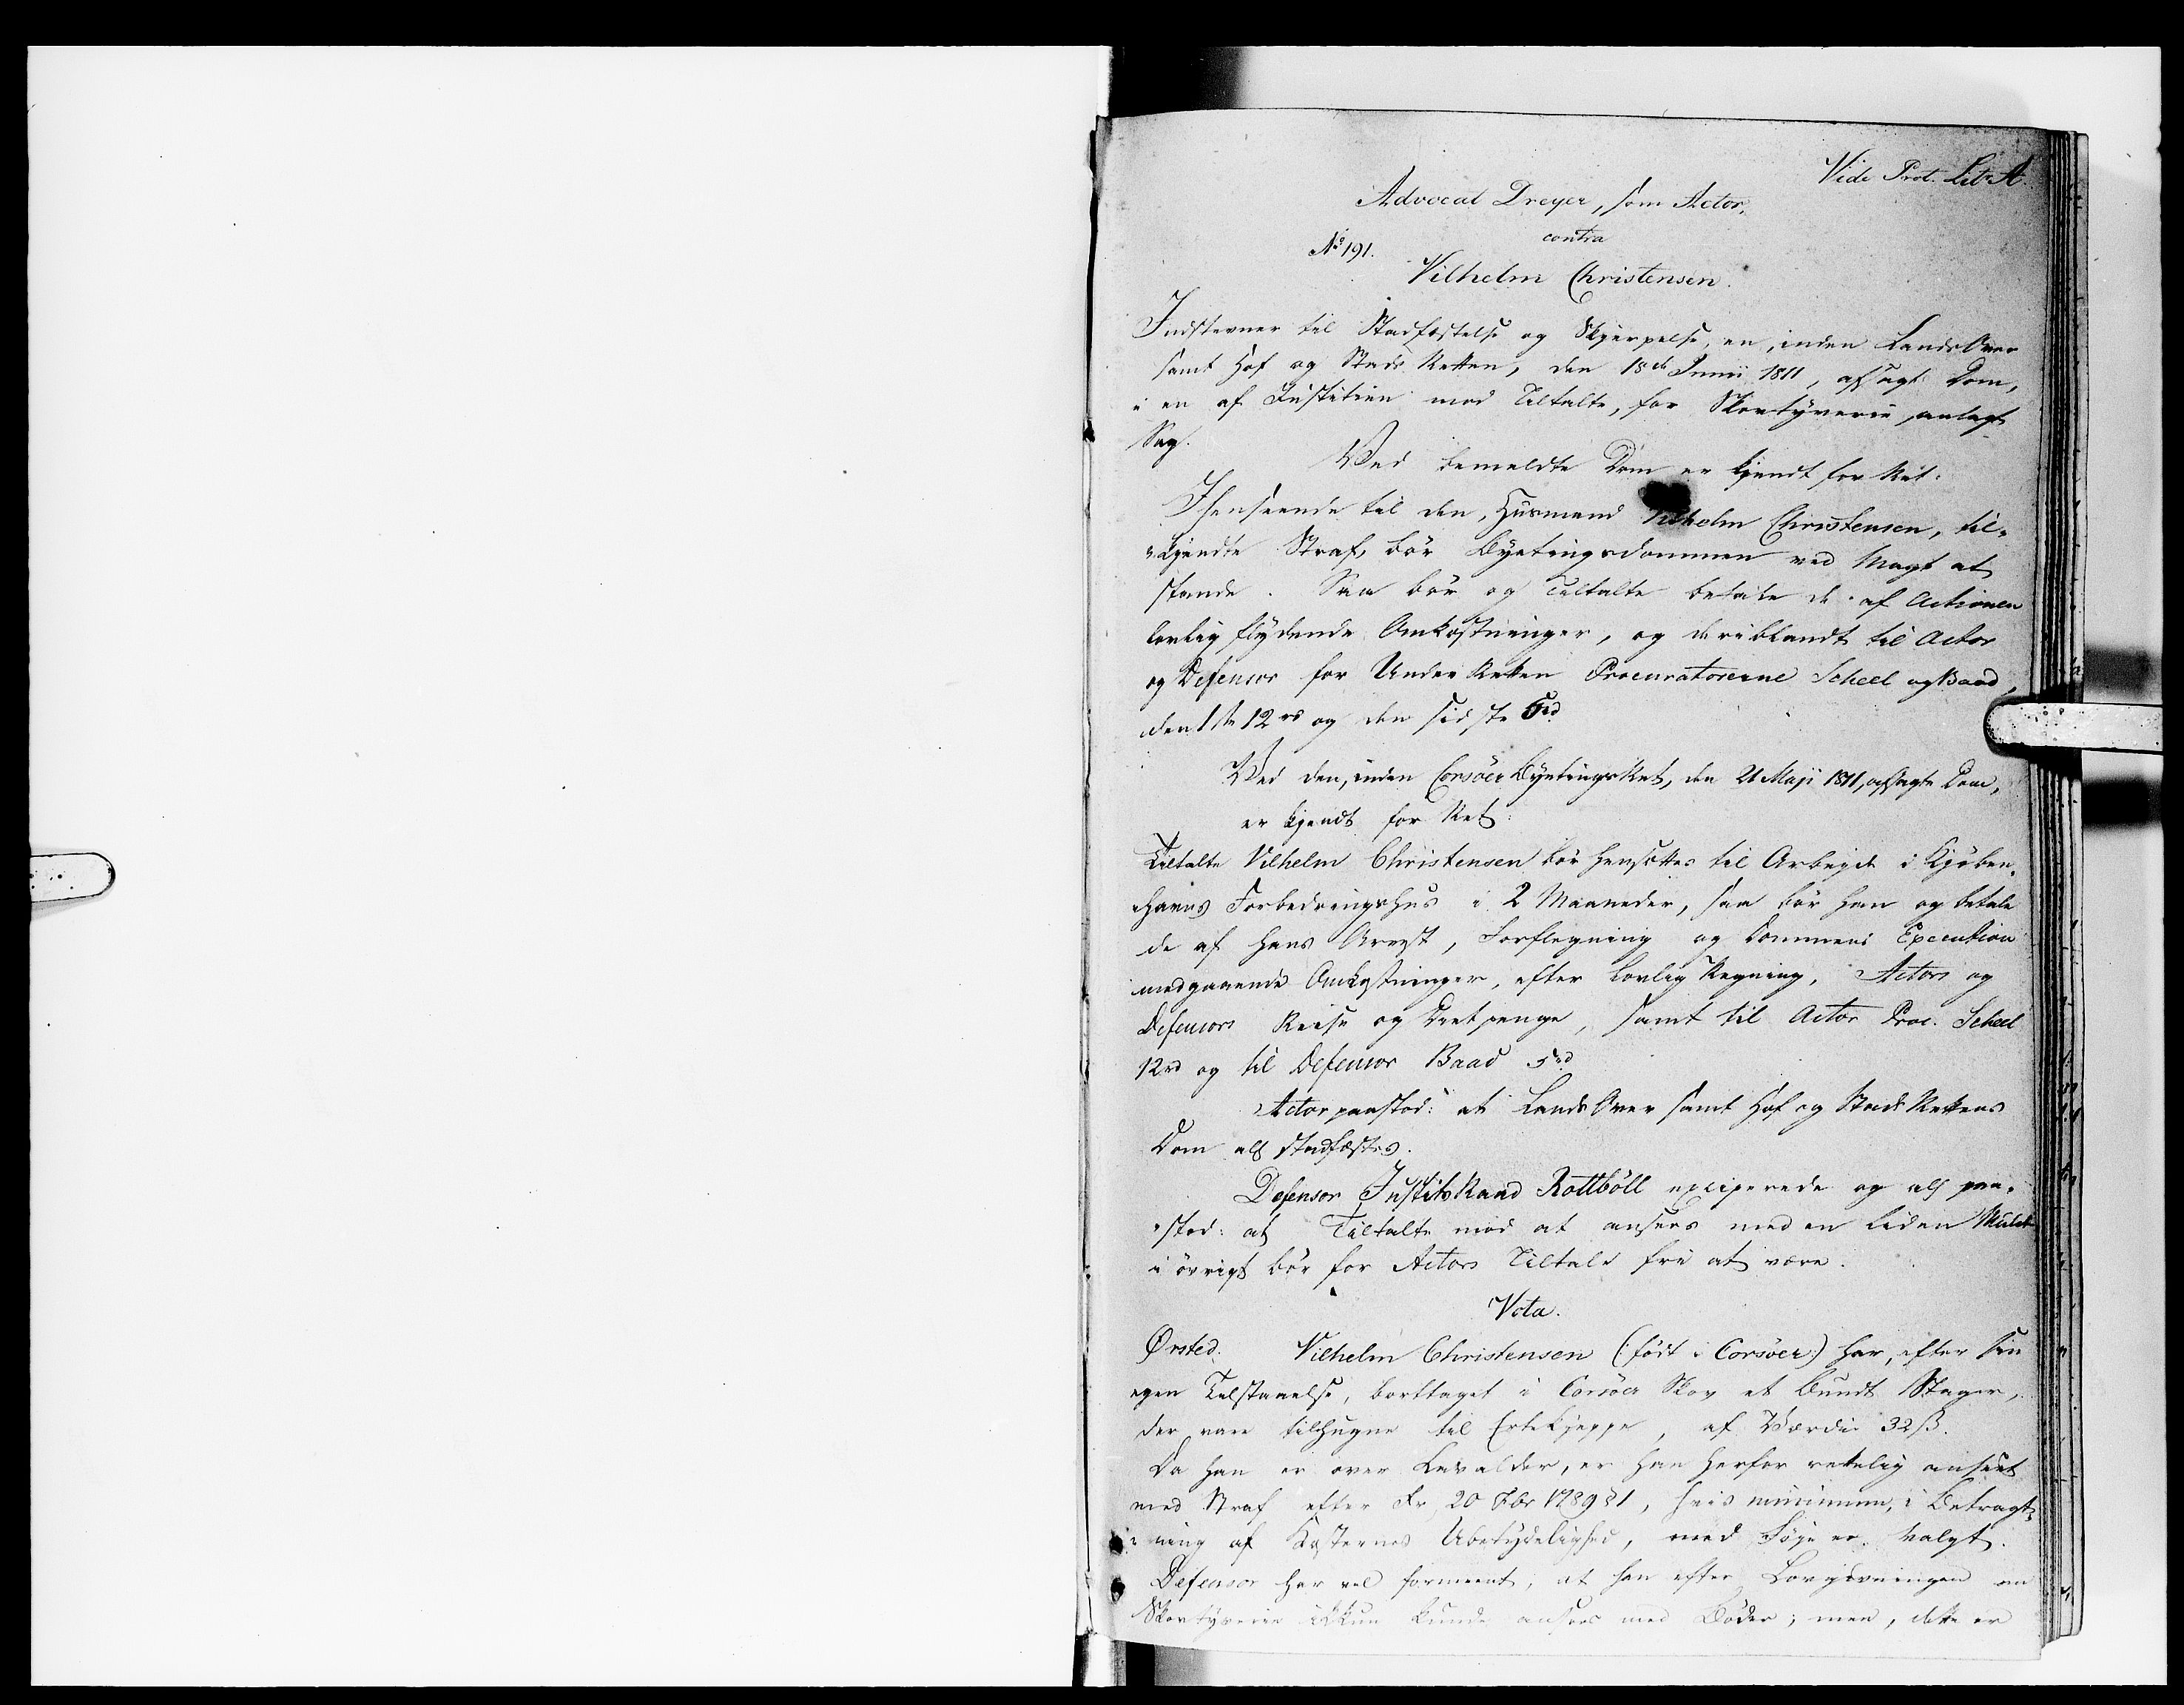 Vide Prot. Litr A.
Advocat Dreyer, som Actor,
contra
No 191.
Vilhelm Christensen.
Indstevner til Stadfæstelse og Skjerpelse, en, inden LandsOver
samt Hof og Stads Retten, den 18de Junii 1811, afsagt Dom,
i en af Justitien mod Tiltalte, for Skovtyverie, anlagt
Sag.
Ved bemeldte Dom er kjendt for Ret:
I henseende til den, Huusmand Vilhelm Christensen, til-
kjendte Straf, bör Bytingsdommen ved Magt at
stande. Saa bör og Tiltalte betale de af Actionen
lovlig flydende Omkostninger, og deriblandt til Actor
og Defensor for UnderRetten Procuratorerne Scheel og Baad,
den 1ste 12 rd og den sidste 5 rd
Ved den, inden Corsöer Bytings Ret, den 21 Maji 1811, afsagte Dom,
er kjendt for Ret:
Tiltalte Vilhelm Christensen bör hensættes til Arbeyde i Kjöben-
havns Forbedringshus i 2 Maaneder, saa bör han og betale
de af hans Arrest, Forflegning og Dommens Execution
medgaaende Omkostninger, efter lovlig Regning, Actors og
Defensors Reise og Diætpenge, samt til Actor Proc. Scheel
12 rd og til Defensor Baad 5 rd
Actor paastod: at LandsOver samt Hof og Stads Rettens
Dom all stadfæstes.
Defensor Justitsraad Rottböll exciperede og all paa-
stod: at Tiltalte mod at ansees med en liden Mulct
i övrigt bör for Actors Tiltale fri at være.
Vota.
Ørsted. Vilhelm Christensen (: födt i Corsöer :) har, efter sin
egen Tilstaaelse, borttaget i Corsöer Skov et Bundt Stager,
der vare tilhugne til Ertekjeppe, af Værdi 32 ß.
Da han er over Lavalder, er han herfor rettelig anseet
med Straf efter Fr 20 Fbr 1789 § 1, hvis minimum, i Betragt-
ning af Kosternes Ubetydelighed, med Föje er valgt.
Defensor har vel formeent, at han efter Lovgivningen om
Skovtyverie ikkun kunde ansees med Böder; men, dette er